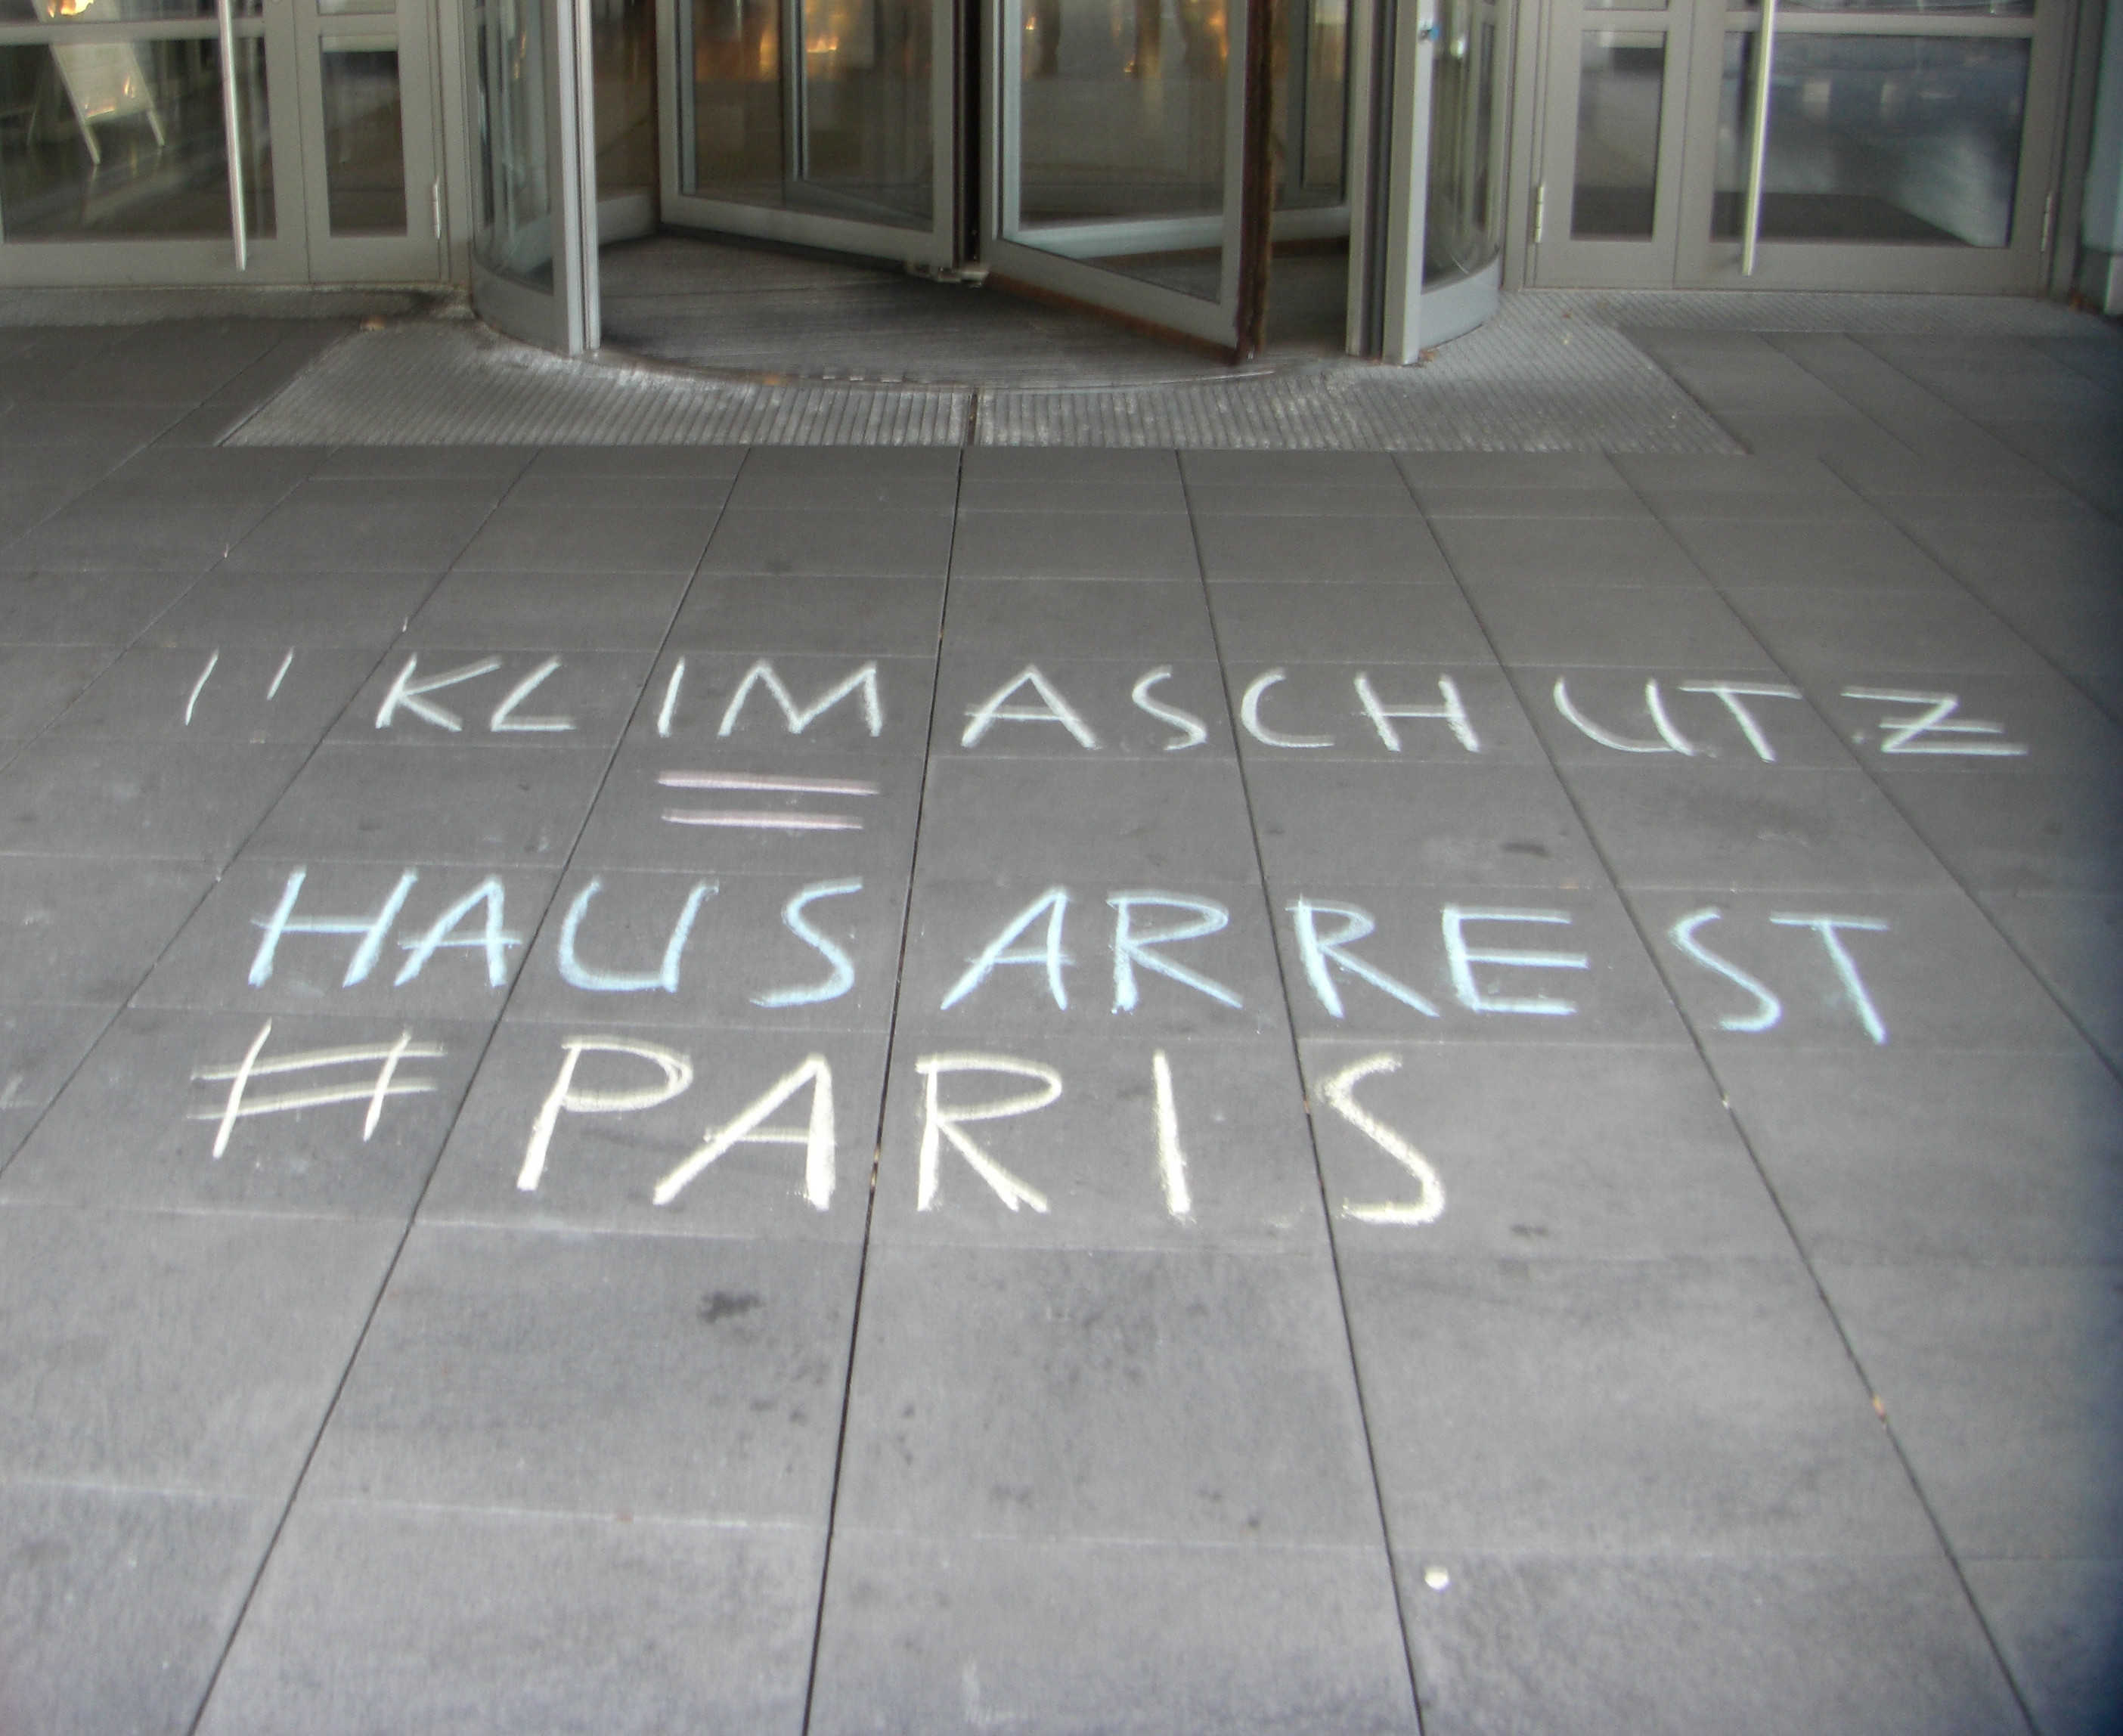 "KLIMASCHUTZ
=
HAUSARREST
#PARIS